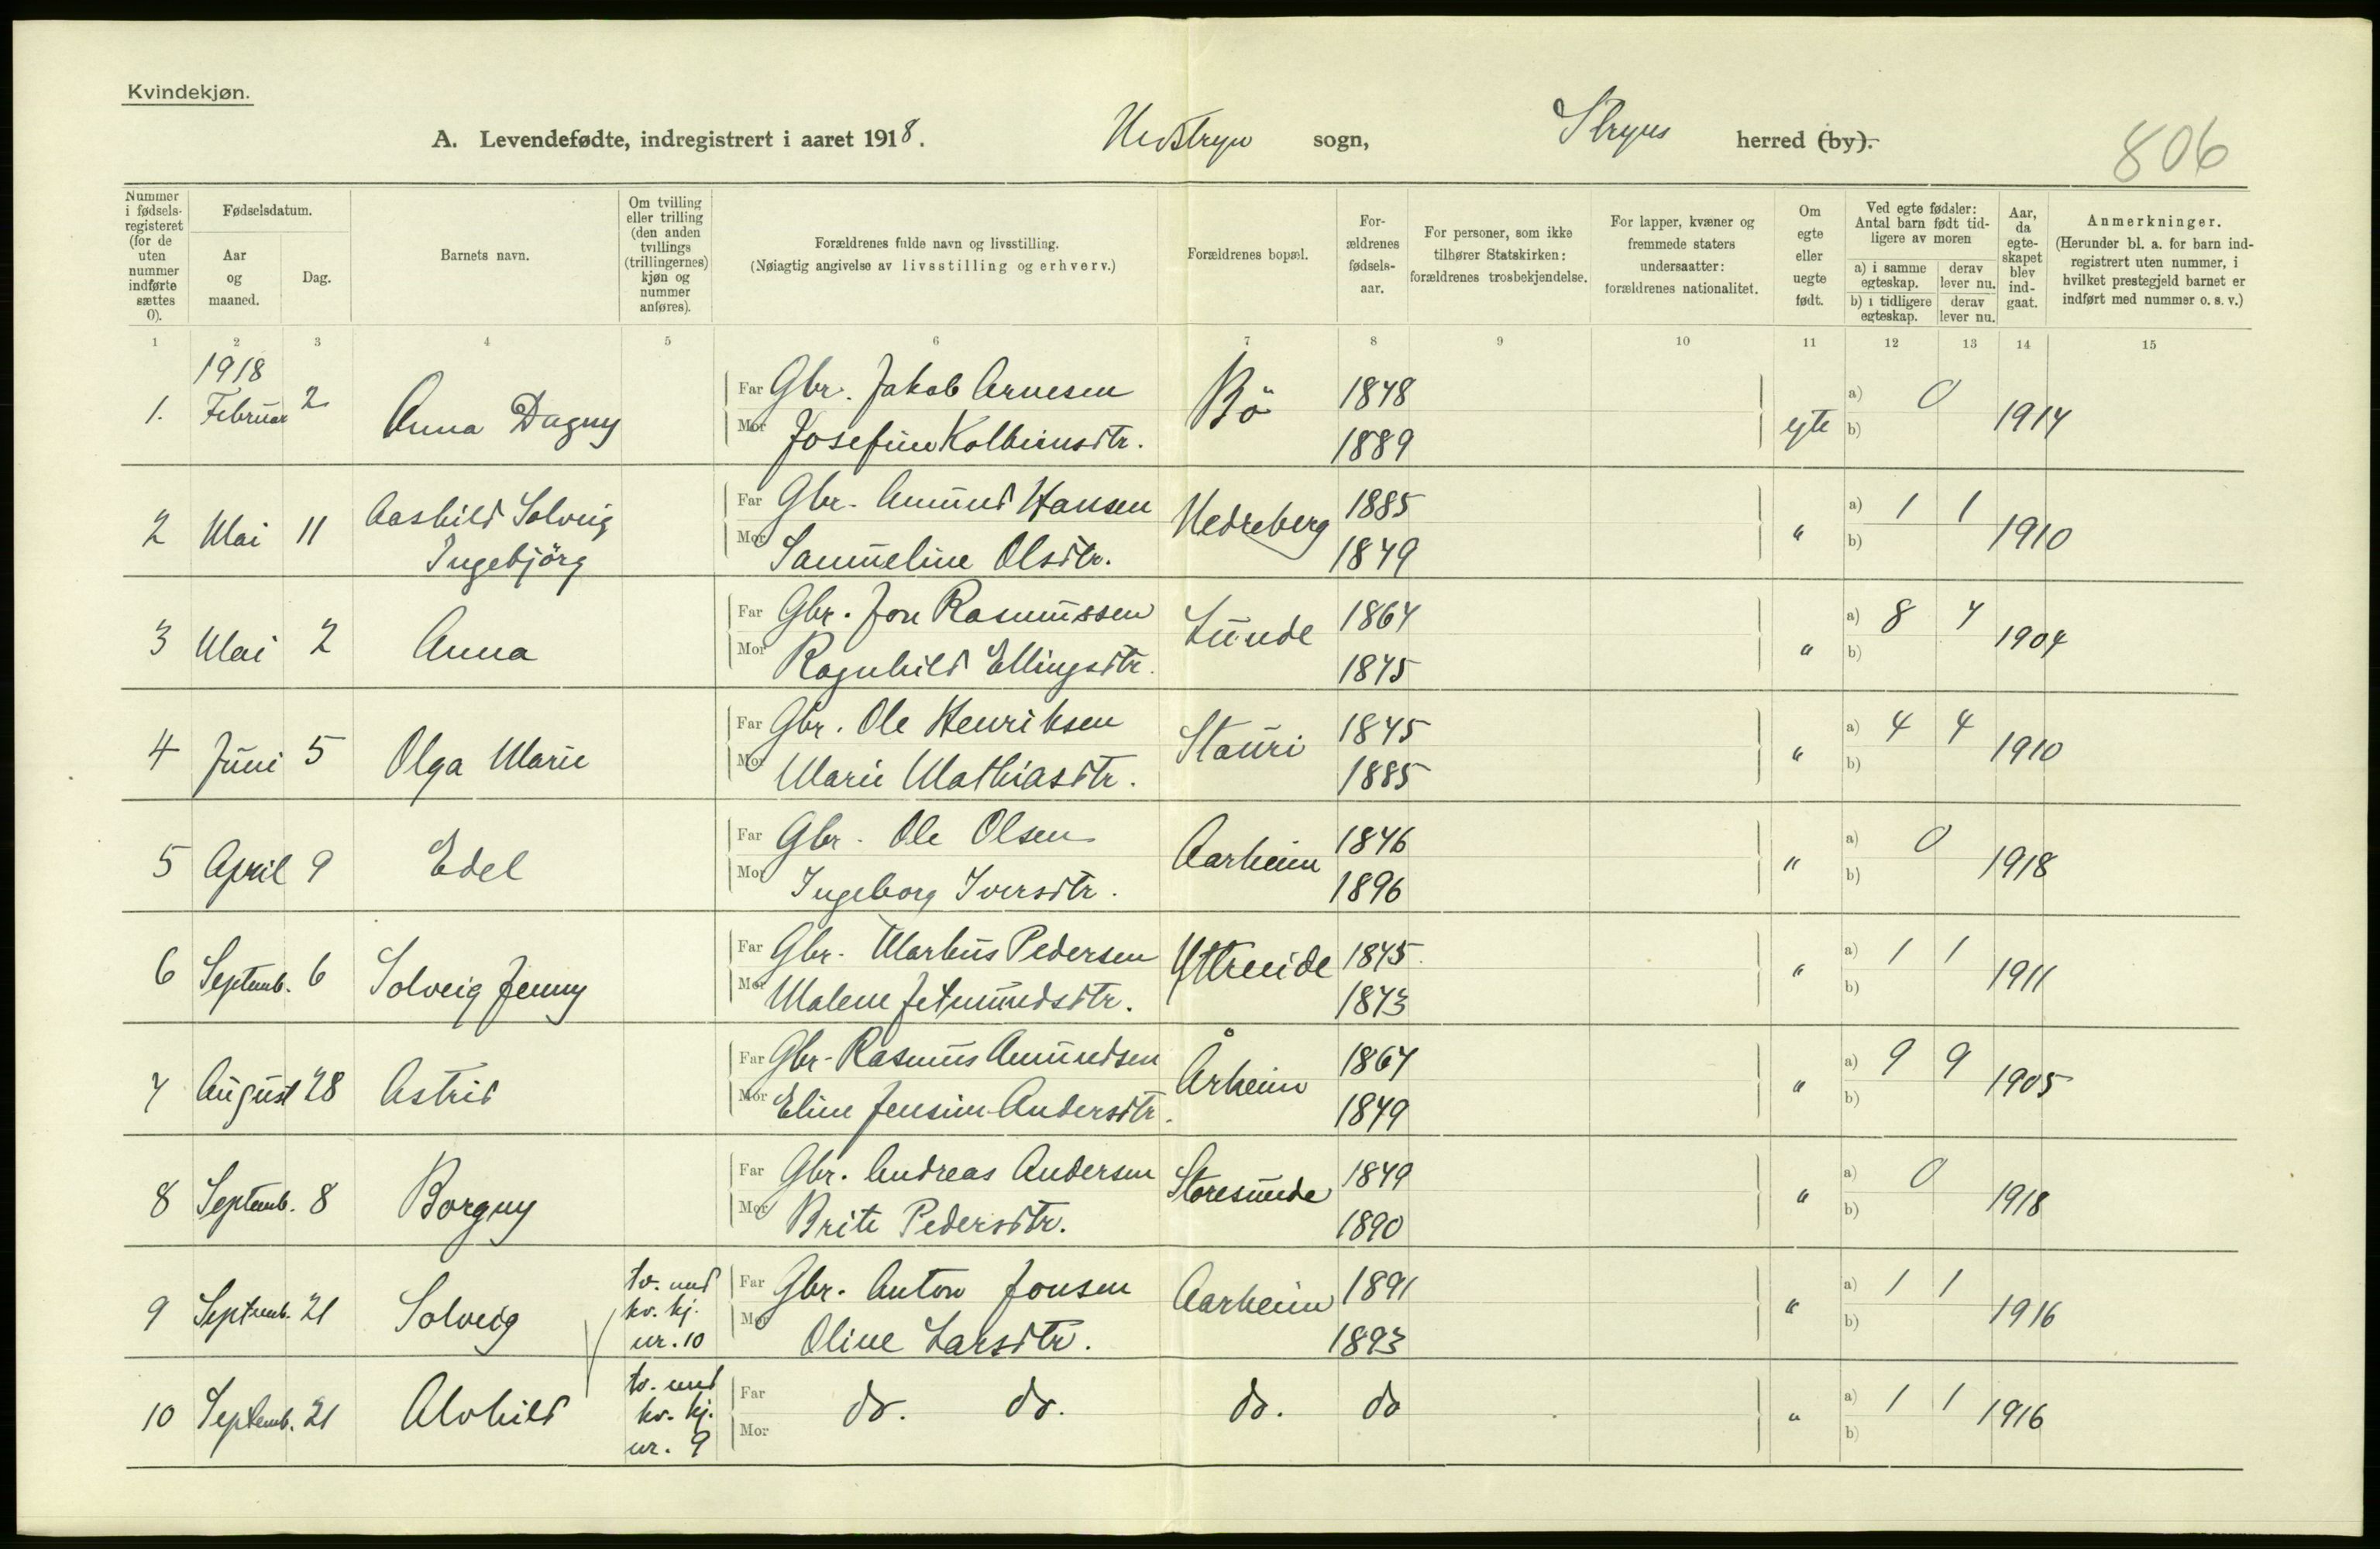 Kvindekjøn.
A. Levendefødte, indregistrert i aaret 1918. Nedstryn sogn, Stryns herred (by).
806
Nummer i fødselsregisteret (for de uten nummer indførte sættes 0).
Fødselsdatum.
Aar og maaned.
Dag.
Barnets navn.
Om tvilling eller trilling (den anden tvillings (trillingernes) kjøn og nummer anføres).
Forældrenes fulde navn og livsstilling.
(Nøiagtig angivelse av livsstilling og erhverv.)
Forældrenes bopæl.
For-ældrenes fødsels-aar.
For personer, som ikke tilhører Statskirken: forældrenes trosbekjendelse.
For lapper, kvæner og fremmede staters undersaatter: forældrenes nationalitet.
Om egte eller uegte født.
Ved egte fødsler: Antal barn født tidligere av moren
a) i samme egteskap. derav lever nu.
b) i tidligere egteskap. derav lever nu.
Aar, da egteskapet blev indgaat.
Anmerkninger.
(Herunder bl. a. for barn indregistrert uten nummer, i hvilket prestegjeld barnet er indført med nummer o. s. v.)
1 2 3 4 5 6 7 8 9 10 11 12 13 14 15
1918
1. Februar 2 Anna Dagny Far Gbr. Jakob Arnesen Bö 1878 egte a) 0 1917
Mor Josefine Kolbeinsdtr. 1889 b)
2 Mai 11 Aashild Solveig Far Gbr. Amund Hansen Nedreberg 1885 " a) 1 1 1910
Ingebjörg Mor Sammeline Olsdtr. 1879 b)
3 Mai 2 Anna Far Gbr. Jon Rasmussen Lunde 1867 " a) 8 7 1904
Mor Ragnhild Ellingsdtr. 1875 b)
4 Juni 5 Olga Marie Far Gbr. Ole Henriksen Stauri 1875 " a) 4 4 1910
Mor Marie Mathiasdtr. 1885 b)
5 April 9 Edel Far Gbr. Ole Olsen Aarheim 1876 " a) 0 1918
Mor Ingeborg Iversdtr. 1896 b)
6 Septemb. 6 Solveig Jenny Far Gbr. Markus Pedersen Yttreeide 1875. " a) 1 1 1911
Mor Malene Jetmundsdtr. 1873 b)
7 August 28 Astrid Far Gbr. Rasmus Amundsen Årheim 1867 " a) 9 9 1905
Mor Eline Jensine Andersdtr. 1879 b)
8 Septemb. 8 Borgny Far Gbr. Andreas Andersen Storesunde 1879 " a) 0 1918
Mor Brite Pedersdtr. 1890 b)
9 Septemb. 21 Solveig tv. med kv. kj. nr. 10 Far Gbr. Anton Jonsen Aarheim 1891 " a) 1 1 1916
Mor Oline Larsdtr. 1893 b)
10 Septemb. 21 Alvhild tv. med kv. kj. nr. 9 Far do. do. do. do " a) 1 1 1916
Mor b)